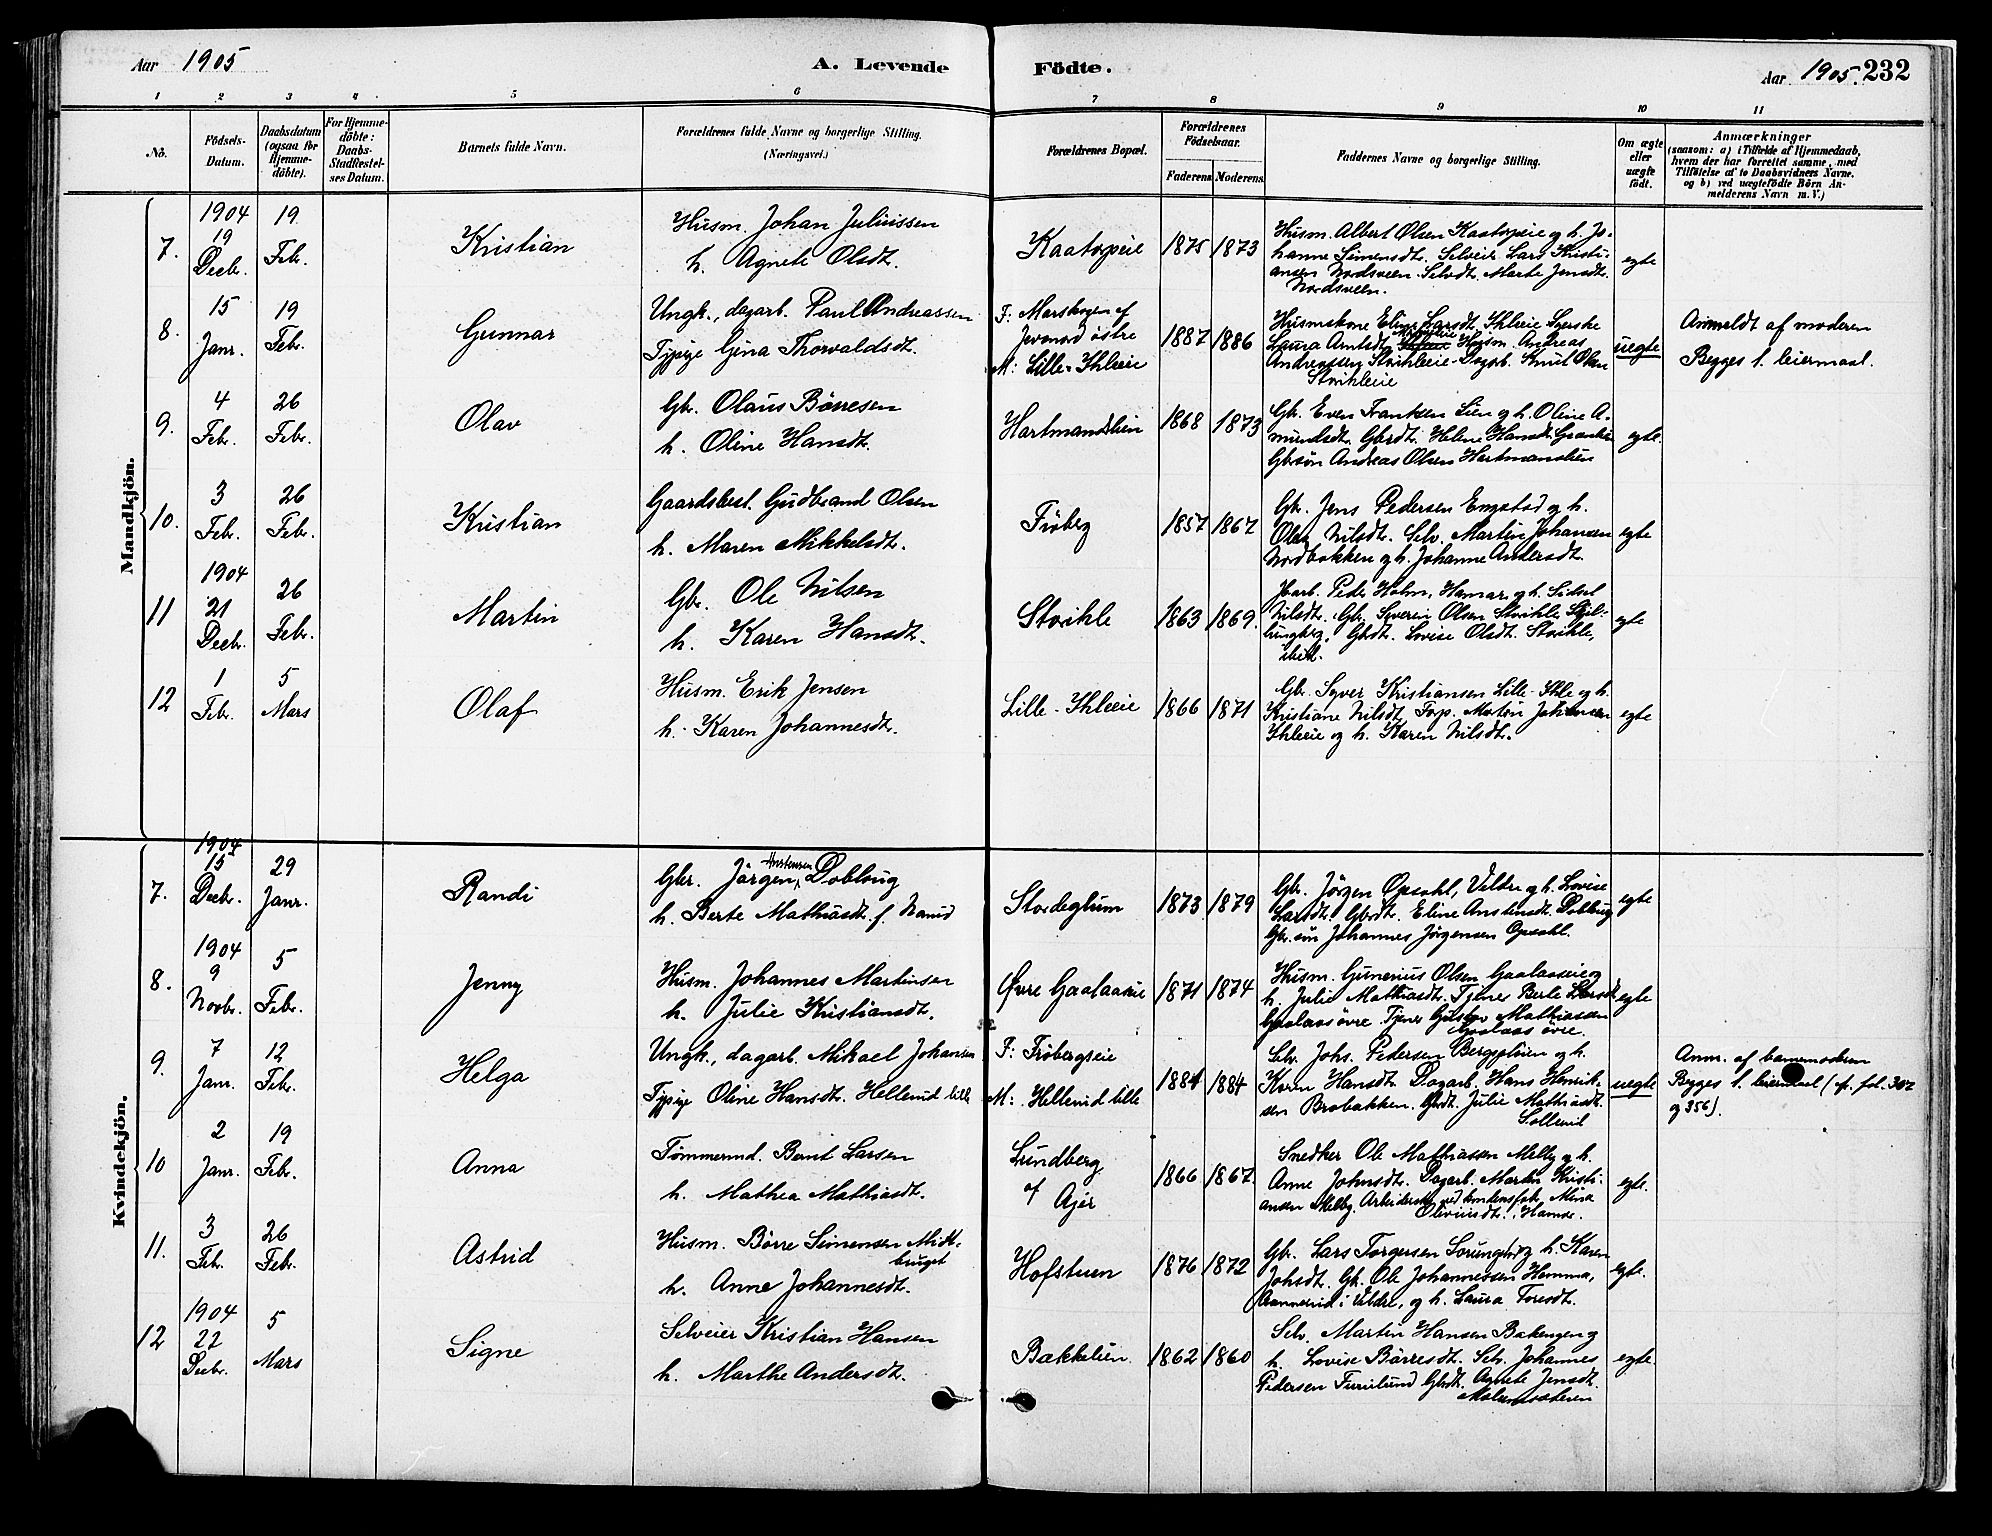 Aar 1905
A. Levende Födte.
Aar 1905. 232
1 2 3 4 5 6 7 8 9 10 11
No.
Födsels-
Datum.
Daabsdatum
(ogsaa for
Hjemme-
döbte).
For Hjemme-
döbte:
Daabs-
Stadfæstel-
ses Datum.
Barnets fulde Navn.
Forældrenes fulde Navne og borgerlige Stilling.
(Næringsvei.)
Forældrenes Bopæl.
Forældrenes
Födselsaar.
Faderens Moderens
Faddernes Navne og borgerlige Stilling.
Om ægte
eller
uægte
födt.
Anmærkninger
(saasom: a) i Tilfælde af Hjemmedaab,
hvem der har forrettet samme, med
Tilföielse af to Daabsvidners Navne,
og b) ved uægtefödte Börn An-
melderens Navn m. V.)
Mandkjön.
7.
1904
19
Decbr.
19
Febr.
Kristian
Husm. Johan Juliussen
h. Agnete Olsdt.
Kaatorpeie
1875 1873
Husm. Albert Olsen Kaatorpeie og h. Jo-
hanne Simensdt. Selveier Lars Kristi-
ansen Nordsveen. Selvdt. Marte Jensdt.
Nordsveen.
egte
8.
15
Janr.
19
Febr.
Gunnar
Ungk., dagarb. Paul Andreassen
Tjpige Gina Thorvaldsdt.
F: Marskogen af
Jevanord östre
M: Lille-Ihleeie
1887 1886
Husmskone Eline Larsdt. Ihleeie
Laura Arntsdt. Husm. Andreas
Andreassen Storihleeie Dagarb. Knut Olsen
Storihleeie
uegte
Anmeldt af moderen
Begges 1. leiermaal.
9.
4
Febr.
26
Febr.
Olav
Gbr. Olaus Börresen
h. Oline Hansdt.
Hartmandslien
1868 1873
Gbr. Even Frantsen Lien og h. Oline A-
mundsdt. Gbrdt. Helene Hansdt.
Gbrsön Andreas Olsen Hartmanslien
egte.
10.
3
Febr.
26
Febr.
Kristian
Gaardsbest. Gudbrand Olsen
h. Maren Mikkelsdt.
Fröberg
1857 1867
Gbr. Jens Pedersen Engstad og h.
Olea Nilsdt. Selv. Martin Johansen
Nordbakken og h. Johanne Andersdt.
egte
11
1904
21
Decbr.
26
Febr.
Martin
Gbr. Ole Nilsen
h. Karen Hansdt.
Storihle
1863 1869.
Peder Holm, Hamar og h. Sidsel
Nilsdt. Gbr. Syverin Olsen Storihle,
Gbrdt. Lovise Olsdt. Storihle,
ibid.
egte
12
1
Febr.
5
Mars
Olaf
Husm. Erik Jensen
h. Karen Johannesdt.
Lille-Ihleeie
1866 1871
Gbr. Syver Kristiansen Lille-Ihle og h.
Kristiane Nilsdt. Forp. Martin Johansen
Ihleeie og h. Karen Nilsdt.
egte
Kvindekjön.
7.
1904
15
Decbr.
29
Janr.
Randi
Gbr. Jörgen Anstensen Dobloug
h. Berte Mathiasdt. f. Narud
Stordeglum
1873 1879
Gbr. Jörgen Opsahl, Veldre og h. Lovise
Larsdt. Gbrdt. Eline Anstensdt. Dobloug
Gbr.sön Johannes Jörgensen Opsahl.
egte
8.
1904
9
Novbr.
5
Febr.
Jenny
Husm. Johannes Martinsen
h. Julie Kristiansdt.
Øvre Gaalaaseie
1871 1874
Husm. Gunerius Olsen Gaalaaseie og
h. Julie Mathiasdt. Tjener Berte Larsdt.
Gaalaas övre. Tjener Gustav Mathiassen
Gaalaas övre.
egte
9.
7
Janr.
12
Febr.
Helga
Ungk., dagarb. Mikael Johansen
Tjpige Oline Hansdt. Hellerud lille
F: Fröbergseie
M: Hellerud lille
1884 1884
Selv. Johs. Pedersen Bergsplien og h.
Karen Hansdt. Dagarb. Hans Henrik-
sen Brobakken. Gbrdt. Julie Mathiasdt.
Sollerud
uegte
Anm. af barnemoderen
Begges 1. leiermaal (cfr. fol. 302
og 356).
10
2
Janr.
19
Febr.
Anna
Tömmermd. Bernt Larsen
h. Mathea Mathiasdt.
Lundberg
af
Ajer
1866 1867.
Snedker Ole Mathiassen Melby og h.
Anne Johnsdt. Dagarb. Martin Kristi-
ansen Melby. Arbeiderske ved kondensfabr. Mina
Oliviusdt., Hamar.
egte.
11.
3
Febr.
26
Febr.
Astrid
Husm. Börre Simensen Midt-
bruget
h. Anne Johannesdt.
Hofstuen
1876 1872
Gbr. Lars Torgersen Lorungberg h. Karen
Johsdt. Gbr. Ole Johannessen Hemma,
Aannerud i Veldre, og h. Laura Toresdt.
egte.
12
1904
22
Decbr.
5
Mars
Signe
Selveier Kristian Hansen
h. Marthe Andersdt.
Bækkelien.
1862 1860
Selv. Martin Hansen Bakengen og
h. Lovise Börresdt. Selv. Johannes
Pedersen Furulund Gbrdt. Agnete Jensdt.
egte.